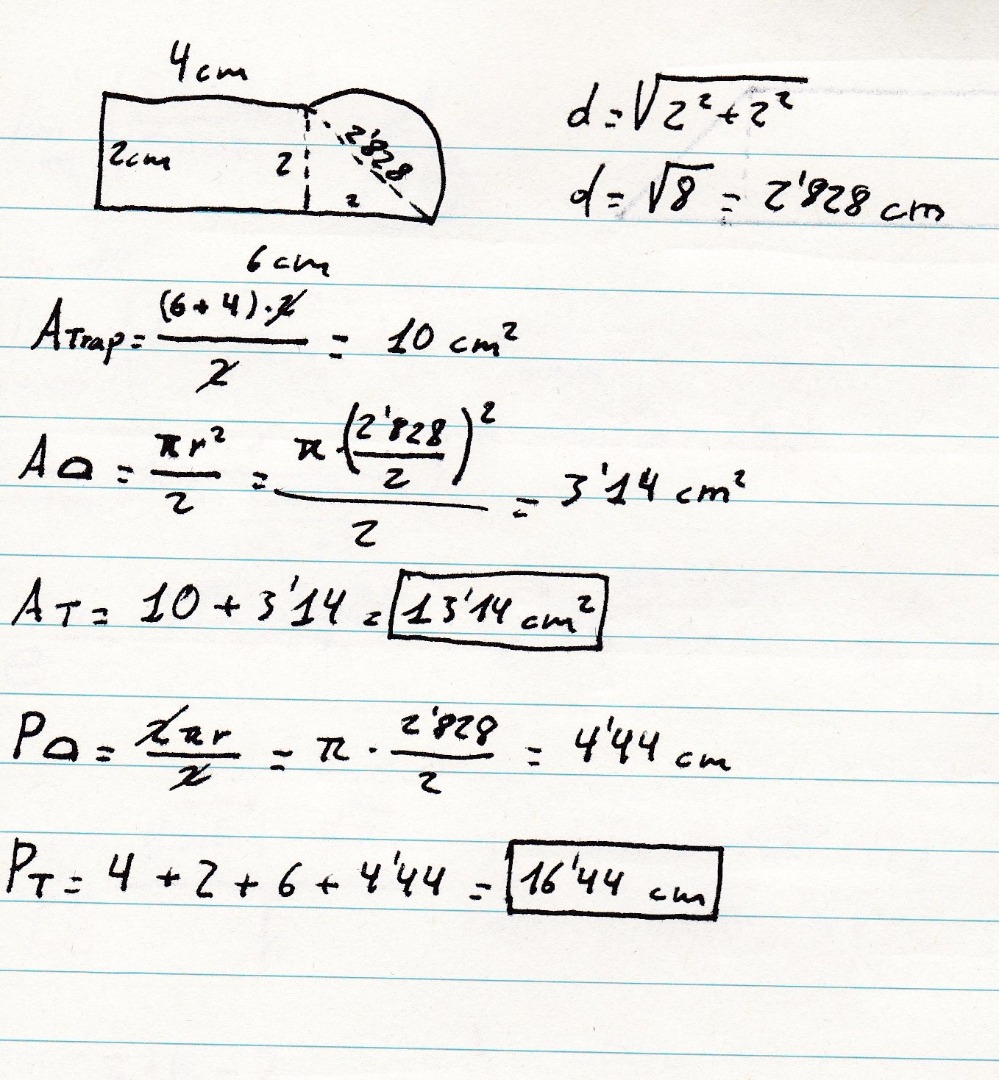 4 cm
2 cm 2 2'828 2
6 cm
d = √2² + 2²
d = √8 = 2'828 cm
A Trap = (6 + 4) · 2 / 2 = 10 cm²
A⌓ = πr² / 2 = π · (2'828 / 2)² / 2 = 3'14 cm²
A T = 10 + 3'14 = 13'14 cm²
P⌓ = 2πr / 2 = π · 2'828 / 2 = 4'44 cm
P T = 4 + 2 + 6 + 4'44 = 16'44 cm